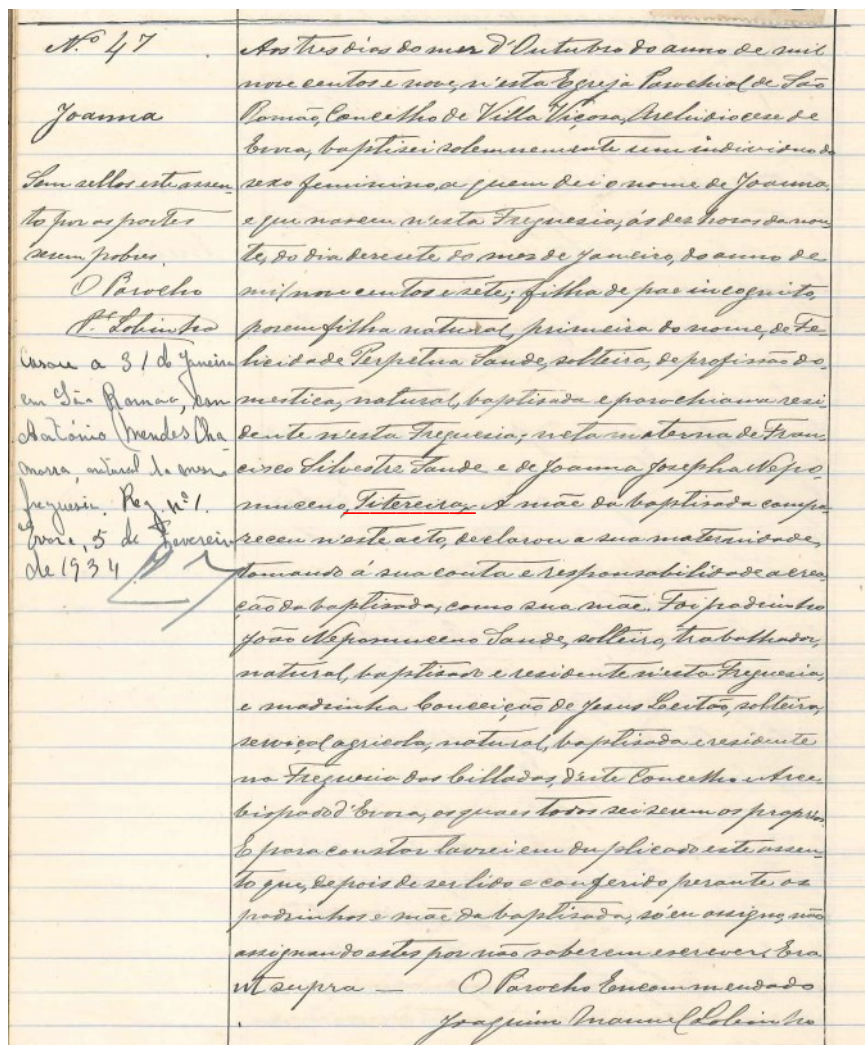 N.º 47
Joanna
Sem sellos este assen-
to por as partes
serem pobres.
O Parocho
P.e Lobinho
Casou a 31 de Janeiro
em São Romão, com
António Mendes Cha
marra, natural da mesma
freguesia. Reg. nº 1.
Evora, 5 de Fevereiro
de 1934
Aos tres dias do mez d'Outubro do anno de mil
nove centos e nove, n'esta Egreja Parochial de São
Romão, Concelho de Villa Viçosa, Archidiocese de
Evora, baptisei solemnemente um individuo do
sexo feminino, a quem dei o nome de Joanna,
e que nasceu n'esta Freguesia, ás dez horas da noi-
te, do dia desesete do mez de Janeiro, do anno de
mil nove centos e sete; filha de pae incognito,
porem filha natural, primeira do nome, de Fe-
licidade Perpetua Sande, solteira, de profissão do-
mestica, natural, baptisada e parochiana resi-
dente n'esta Freguesia; neta materna de Fran-
cisco Silvestre Sande e de Joanna Josepha Nepo-
muceno, Titereira. A mãe da baptisada compa-
receu n'este acto, declarou a sua maternidade,
tomando á sua conta e responsabilidade a crea-
ção da baptisada, como sua mãe. Foi padrinho
João Nepomuceno Sande, solteiro, trabalhador,
natural, baptisado e residente n'esta Freguesia,
e madrinha Conceição de Jesus Leitão, solteira,
serviçal agricola, natural, baptisada e residente
na Freguesia das Cilladas, d'este Concelho e Arce-
bispado d'Evora, os quaes todos sei serem os proprios.
E para constar lavrei em duplicado este assen-
to que, depois de ser lido e conferido perante os
padrinhos e mãe da baptisada, só eu assigno, não
assignando estes por não saberem escrever. Era
ut supra — O Parocho Encommendado
Joaquim Manuel Lobinho